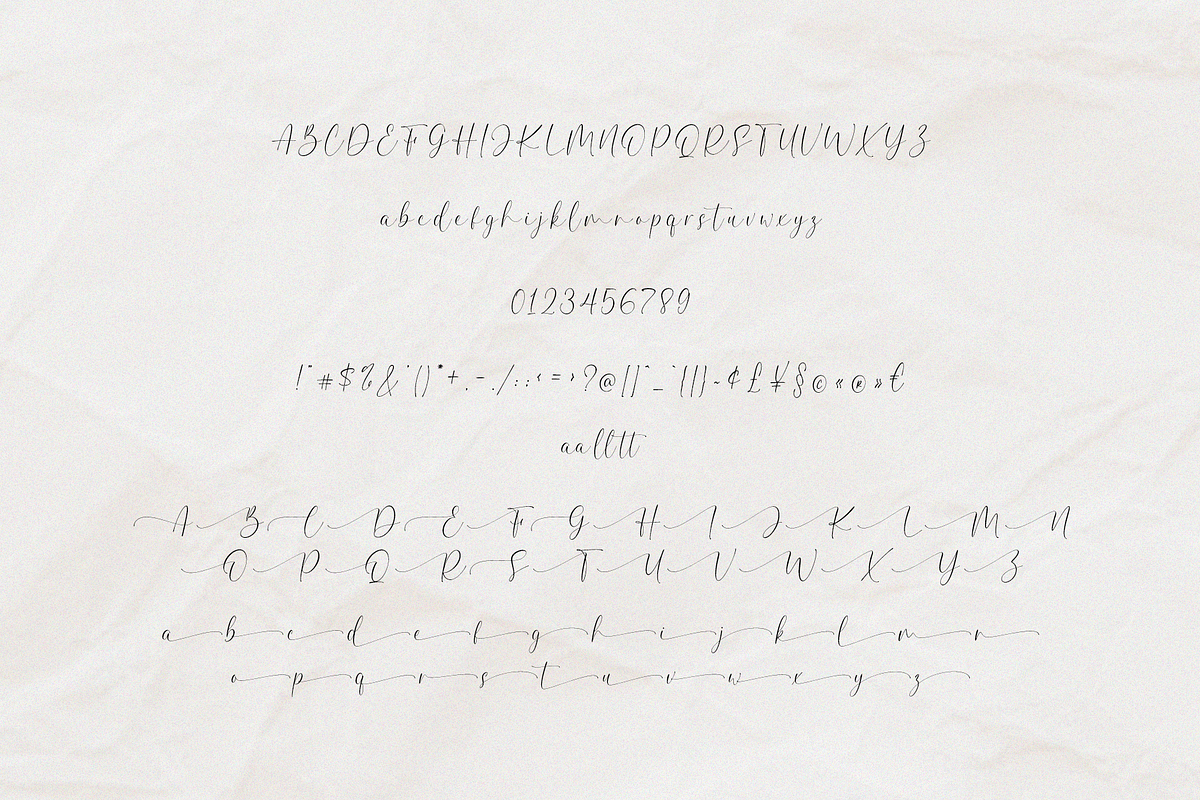 ABCDEFGHIJKLMNOPQRSTUVWXYZ
abcdefghijklmnopqrstuvwxyz
0123456789
!"#$%&'()*+,-./:;<=>?@[\]^_`{|}~¢£¥§©«®»€
aalltt
A B C D E F G H I J K L M N
O P Q R S T U V W X Y Z
a b c d e f g h i j k l m n
o p q r s t u v w x y z